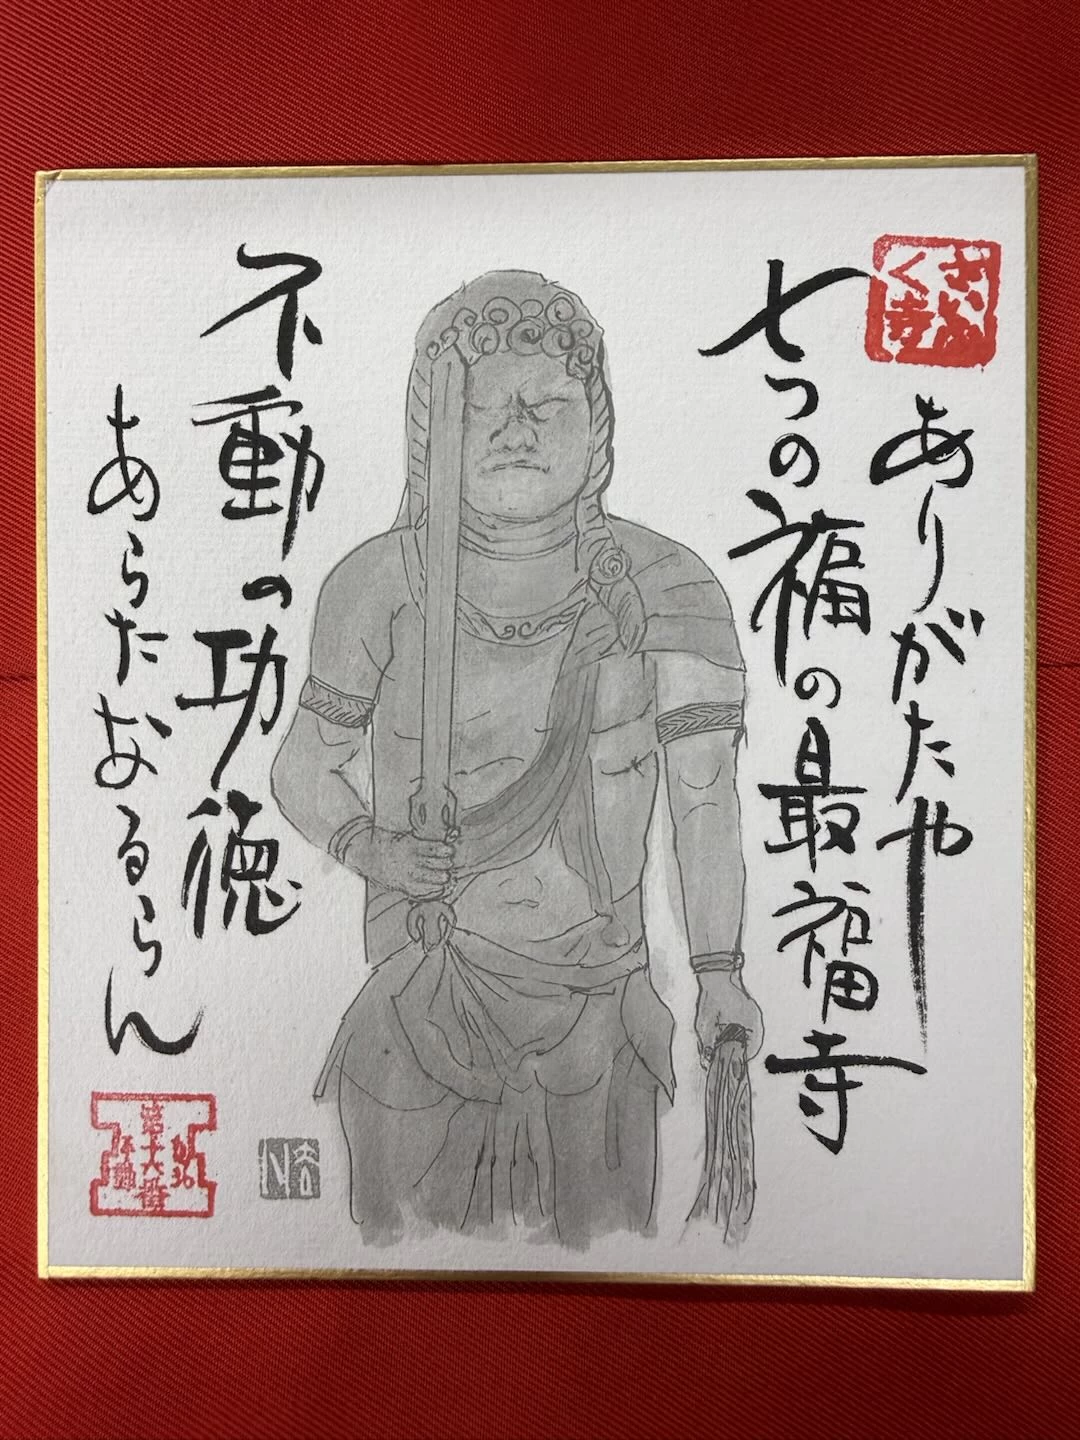 ありがたや
七つの福の最福寺
不動の功徳
あらたなるらん
さいふくじ
第十六番